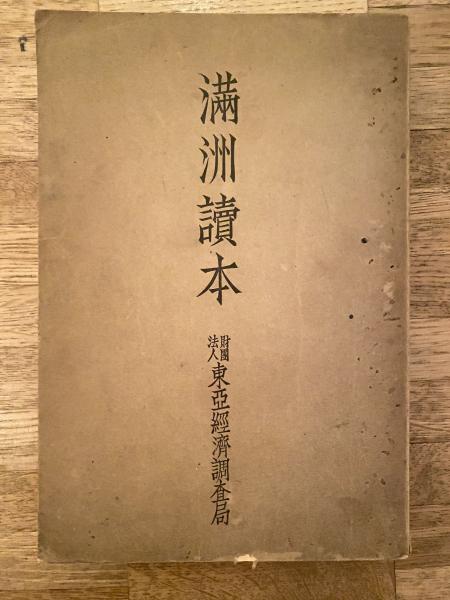 滿洲讀本
財團法人 東亞經濟調査局